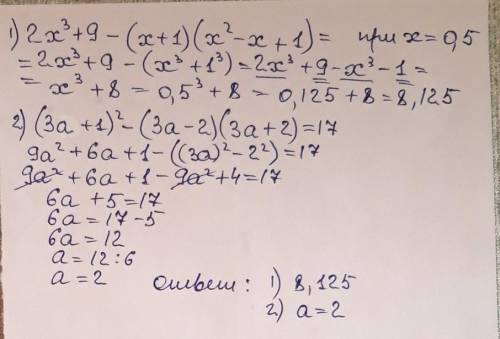 1) 2x³+9-(x+1)(x²-x+1)= при x=0,5
=2x³+9-(x³+1³)=2x³+9-x³-1=
=x³+8=0,5³+8=0,125+8=8,125
2) (3a+1)²-(3a-2)(3a+2)=17
9a²+6a+1-((3a)²-2²)=17
9a²+6a+1-9a²+4=17
6a+5=17
6a=17-5
6a=12
a=12:6
a=2
ответ: 1) 8,125
2) a=2